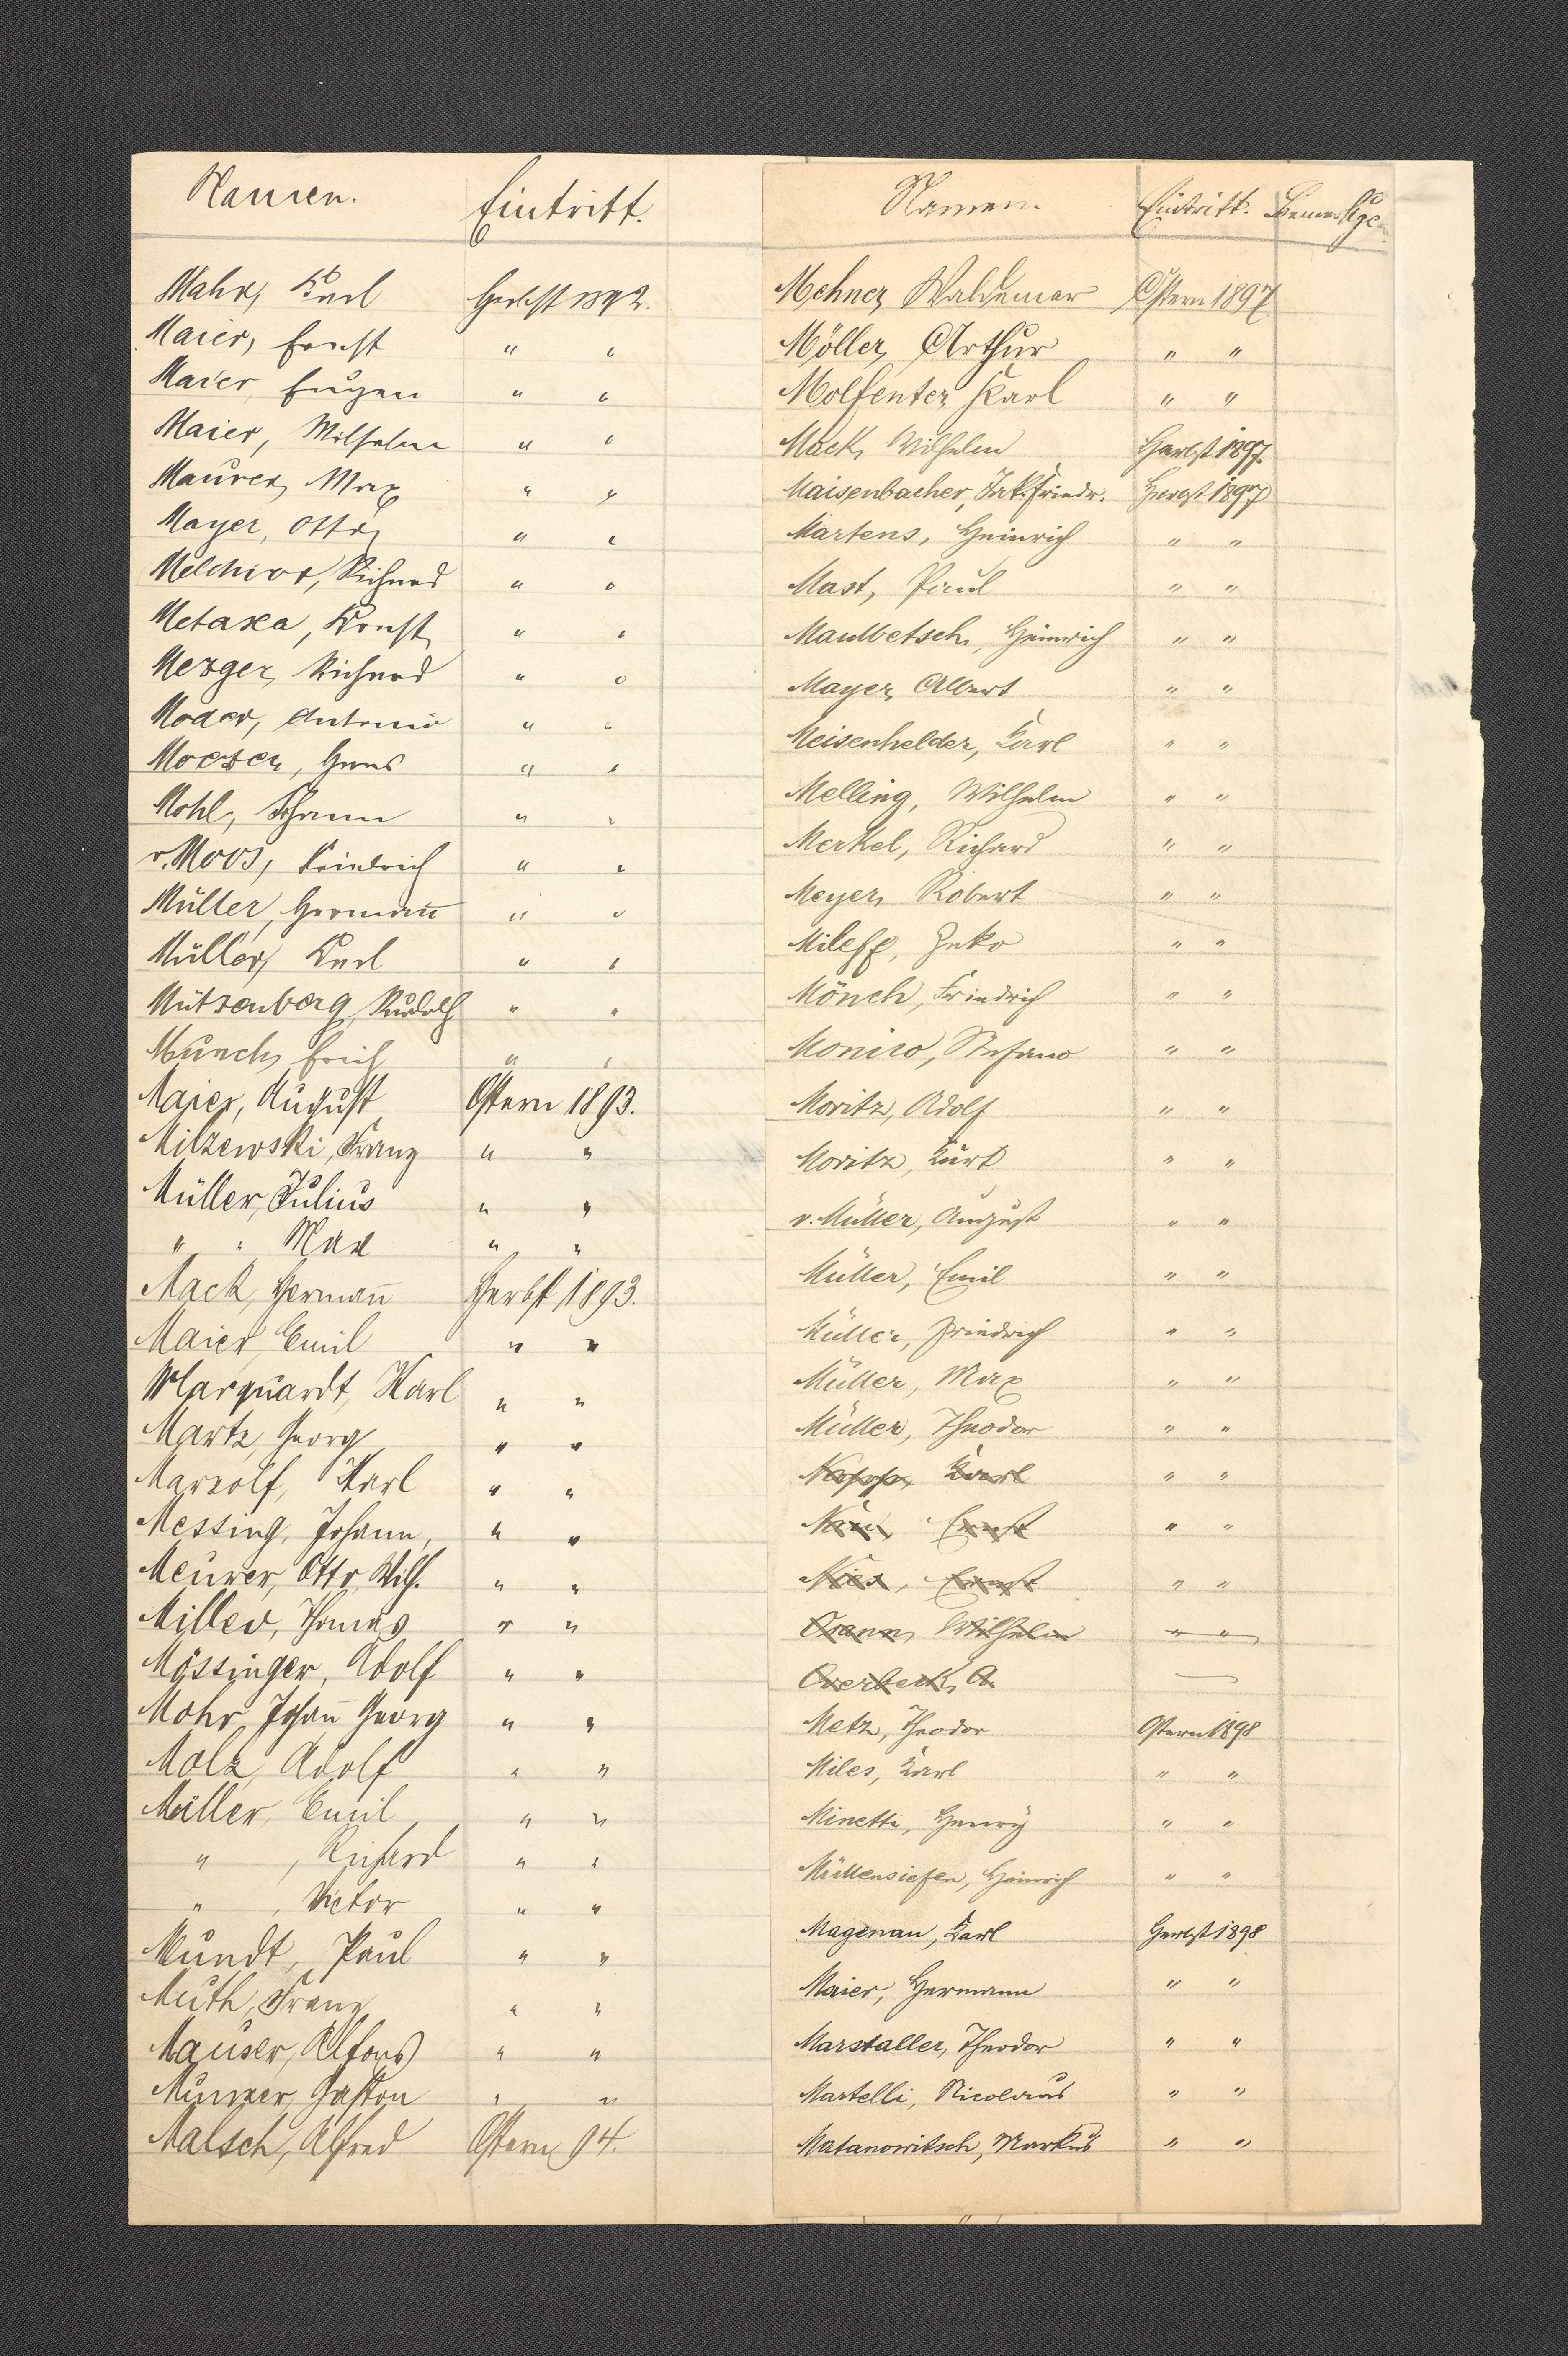 Namen. Eintritt.
Mahr, Karl Herbst 1892.
Maier, Ernst " "
Maier, Eugen " "
Maier, Wilhelm " "
Maurer, Max " "
Mayer, Otto " "
Melchior, Richard " "
Metaxa, Const. " "
Mezger, Richard " "
Moder, Antonio " "
Moeser, Hans " "
Mohl, Johann " "
v. Moos, Friedrich " "
Müller, Hermann " "
Müller, Karl " "
Mützenberg, Rudolf " "
Münch, Erich " "
Maier, August Ostern 1893.
Milzewski, Franz " "
Müller, Julius " "
" " Max " "
Mack, Hermann Herbst 1893.
Maier, Emil " "
Marquardt, Karl " "
Martz, Georg " "
Marzolf, Karl " "
Messing, Johann, " "
Meurer, Otto Wilh. " "
Miller, Thomas " "
Mössinger, Adolf " "
Mohr, Johann Georg " "
Molz, Adolf " "
Müller, Emil " "
" , Richard " "
" , Victor " "
Mundt, Paul " "
Muth, Franz " "
Mauser, Alfons " "
Gaston " "
Malsch, Alfred Ostern 94.
Namen. Eintritt. Bemerkge.
Mehner, Waldemar Ostern 1897
Möller, Arthur " "
Molfenter, Karl " "
Mack, Wilhelm Herbst 1897.
Maisenbacher, Jak. Friedr. Herbst 1897
Martens, Heinrich " "
Mast, Paul " "
Maulbetsch, Heinrich " "
Mayer, Albert " "
Meisenhelder, Karl " "
Melling, Wilhelm " "
Merkel, Richard " "
Meyer, Robert " "
Mileff, " "
Mönch, Friedrich " "
Moniro, Stefano " "
Moritz, Adolf " "
Moritz, Kurt " "
v. Müller, August " "
Müller, Emil " "
Müller, Friedrich " "
Müller, Max " "
Müller, Theodor " "
Karl " "
Ernst " "
Nies, Ernst " "
Osann, Wilhelm " "
Overbeck, A
Metz, Theodor Ostern 1898
Miles, Karl " "
Minetti, Henry " "
Müllensiefen, Heinrich " "
Magenau, Karl Herbst 1898
Maier, Hermann " "
Marstaller, Theodor " "
Martelli, Nicolaus " "
Matanowitsch, Markus " "